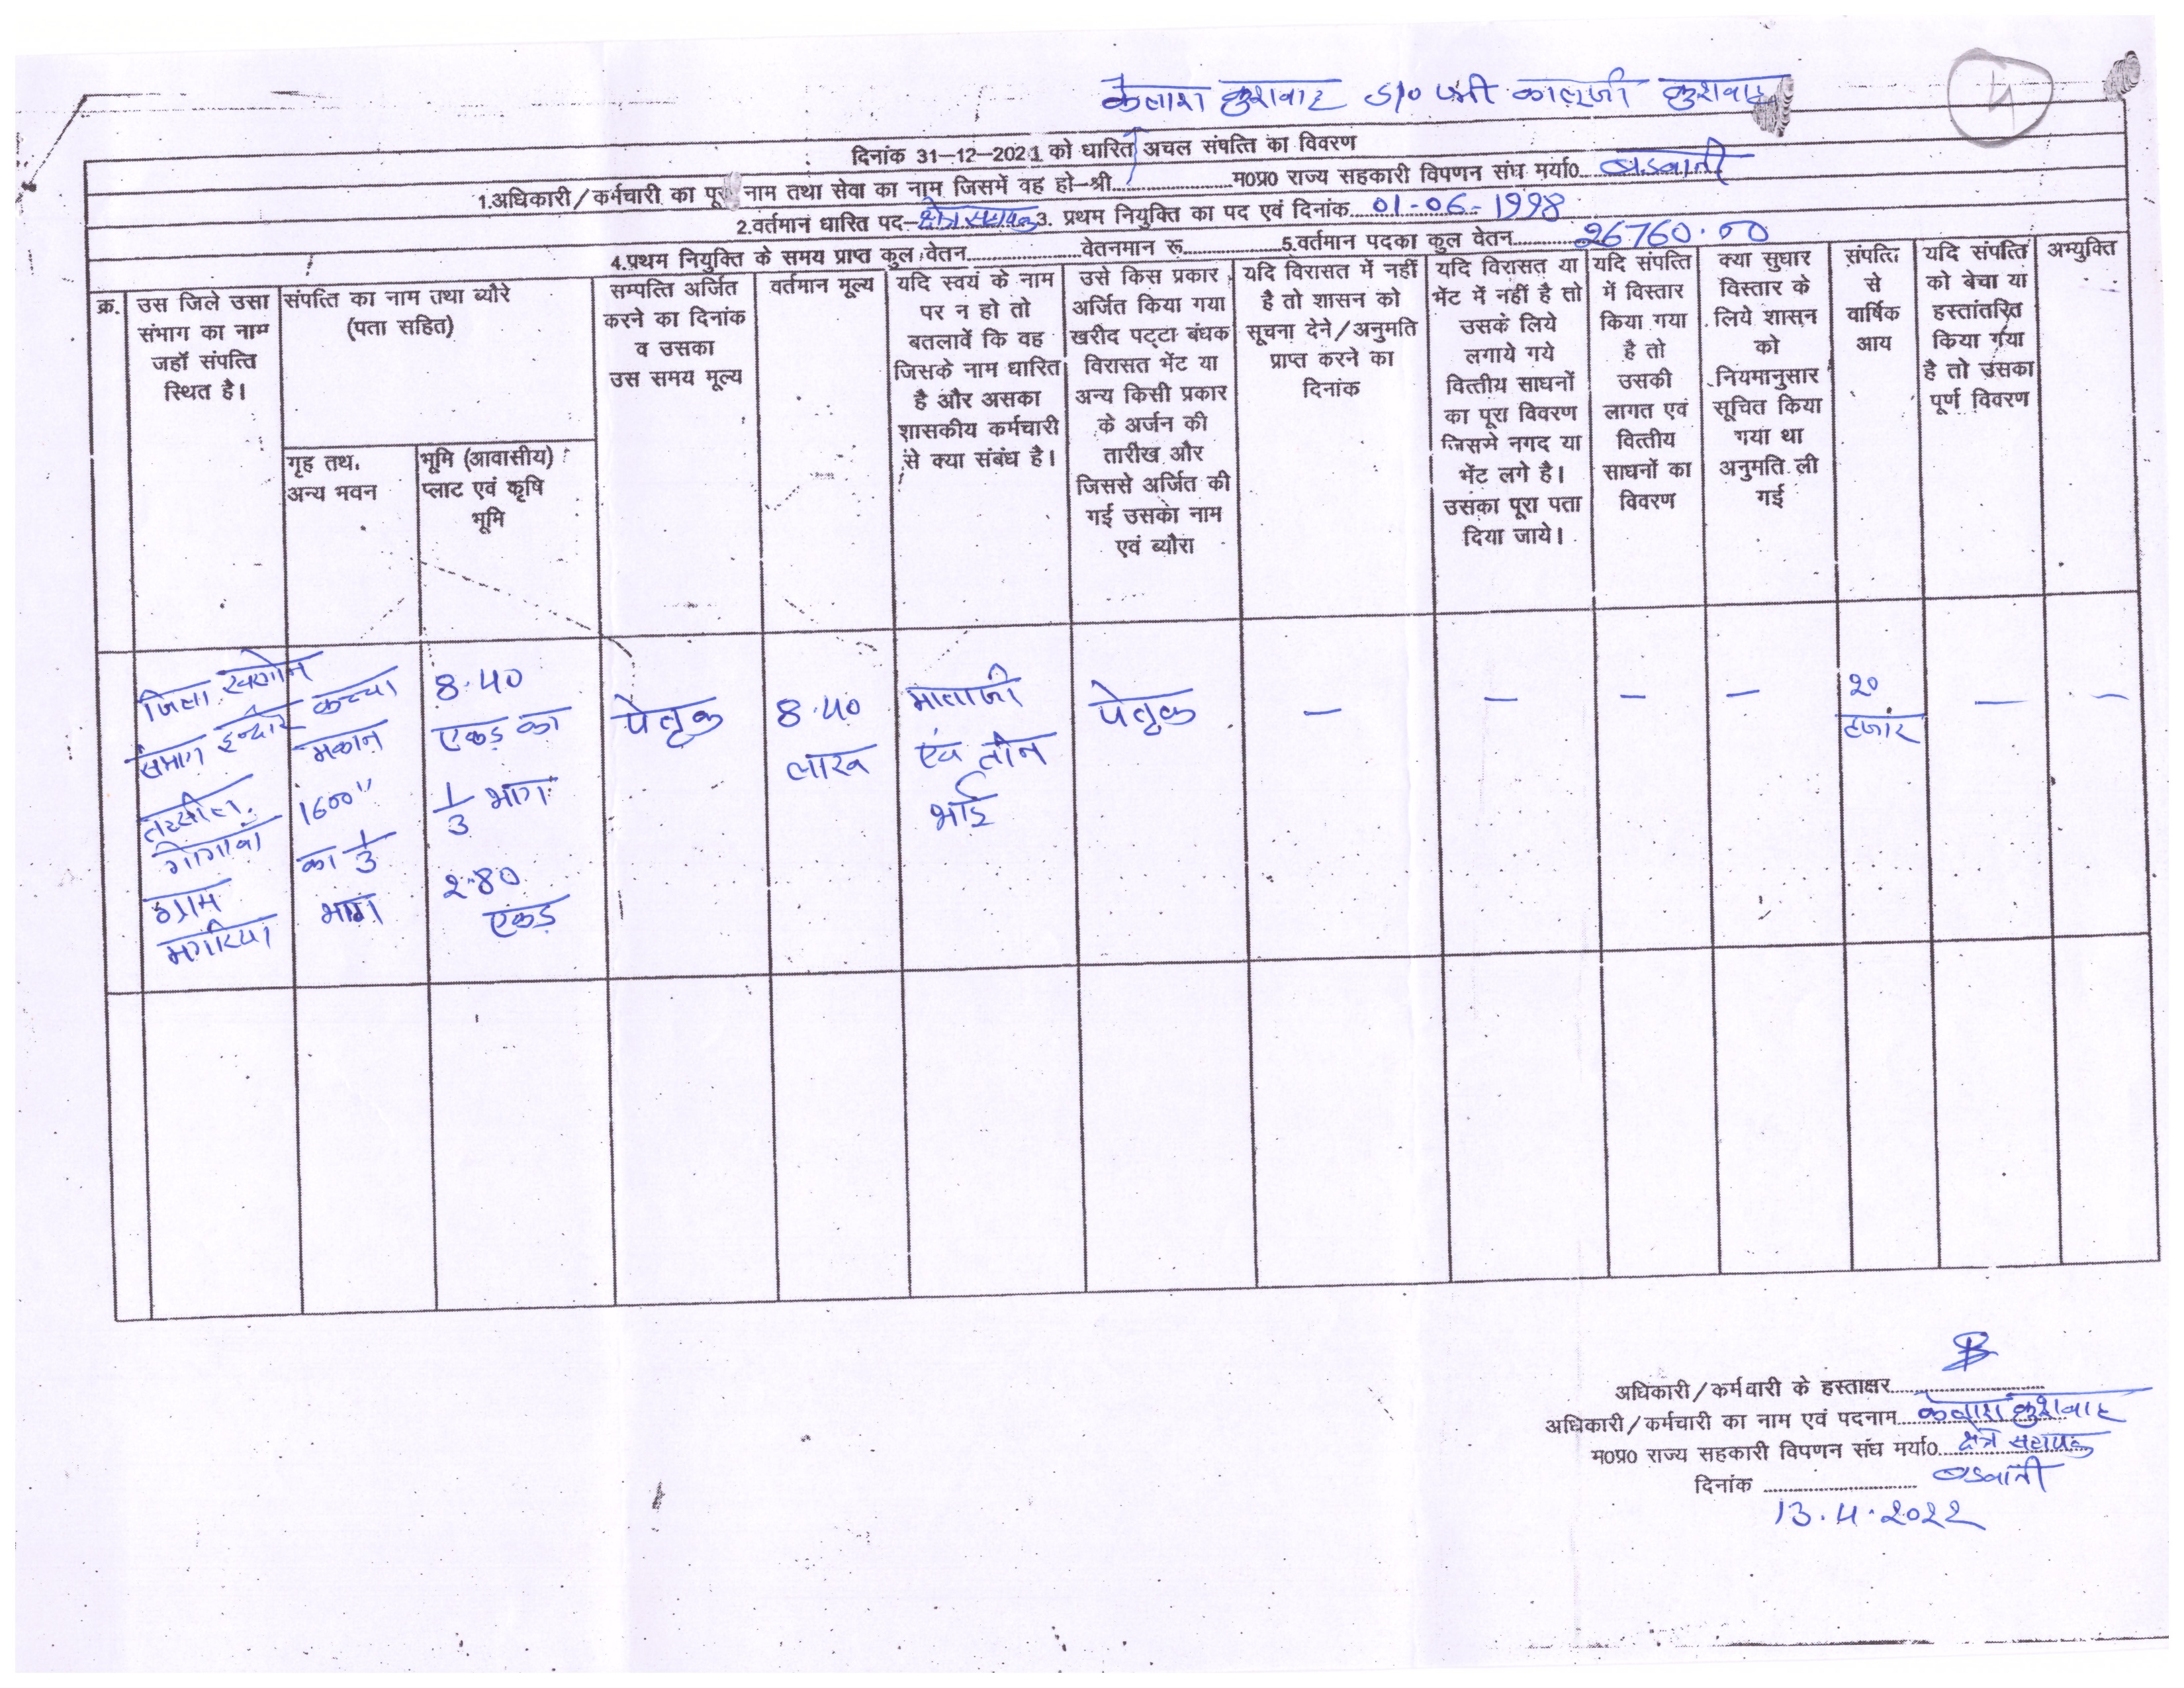 कैलाश कुशवाह S/o श्री कालूजी कुशवाह
4
दिनांक 31-12-2021 को धारित अचल संपत्ति का विवरण
1.अधिकारी/कर्मचारी का पूरा नाम तथा सेवा का नाम जिसमें वह हो-श्री..............म०प्र० राज्य सहकारी विपणन संघ मर्या०.. बड़वानी
2.वर्तमान धारित पद- क्षेत्र सहायक 3. प्रथम नियुक्ति का पद एवं दिनांक.. 01-06-1998
4.प्रथम नियुक्ति के समय प्राप्त कुल वेतन..............वेतनमान रू..............5.वर्तमान पदका कुल वेतन.. 26760.00
क्र.
उस जिले उसा
संभाग का नाम
जहॉ संपत्ति
स्थित है।
संपत्ति का नाम तथा ब्यौरे
(पता सहित)
गृह तथ.
अन्य भवन
भूमि (आवासीय)
प्लाट एवं कृषि
भूमि
सम्पत्ति अर्जित
करने का दिनांक
व उसका
उस समय मूल्य
वर्तमान मूल्य
यदि स्वयं के नाम
पर न हो तो
बतलावें कि वह
जिसके नाम धारित
है और असका
शासकीय कर्मचारी
से क्या संबंध है।
उसे किस प्रकार
अर्जित किया गया
खरीद पट्टा बंधक
विरासत भेंट या
अन्य किसी प्रकार
के अर्जन की
तारीख और
जिससे अर्जित की
गई उसका नाम
एवं ब्यौरा
यदि विरासत में नहीं
है तो शासन को
सूचना देने/अनुमति
प्राप्त करने का
दिनांक
यदि विरासत या
भेंट में नहीं है तो
उसके लिये
लगाये गये
वित्तीय साधनों
का पूरा विवरण
जिसमे नगद या
भेंट लगे है।
उसका पूरा पता
दिया जाये।
यदि संपत्ति
में विस्तार
किया गया
है तो
उसकी
लागत एवं
वित्तीय
साधनों का
विवरण
क्या सुधार
विस्तार के
लिये शासन
को
नियमानुसार
सूचित किया
गया था
अनुमति ली
गई
संपत्ति
से
वार्षिक
आय
यदि संपत्ति
को बेचा या
हस्तांतरित
किया गया
है तो उसका
पूर्ण विवरण
अम्युक्ति
जिला खरगोन
संभाग इन्दौर
तहसील.
गोगावाँ
ग्राम
मगरिया
कच्चा
मकान
1600"
का 1/3
भाग
8.40
एकड़ का
1/3 भाग
2.80
एकड़
पैतृक
8.40
लाख
माताजी
एवं तीन
भाई
पैतृक
—
—
—
—
20
हजार
—
—
अधिकारी/कर्मचारी के हस्ताक्षर..............
अधिकारी/कर्मचारी का नाम एवं पदनाम.. कैलाश कुशवाह
म०प्र० राज्य सहकारी विपणन संघ मर्या०.. क्षेत्र सहायक
दिनांक .............. बड़वानी
13.4.2022